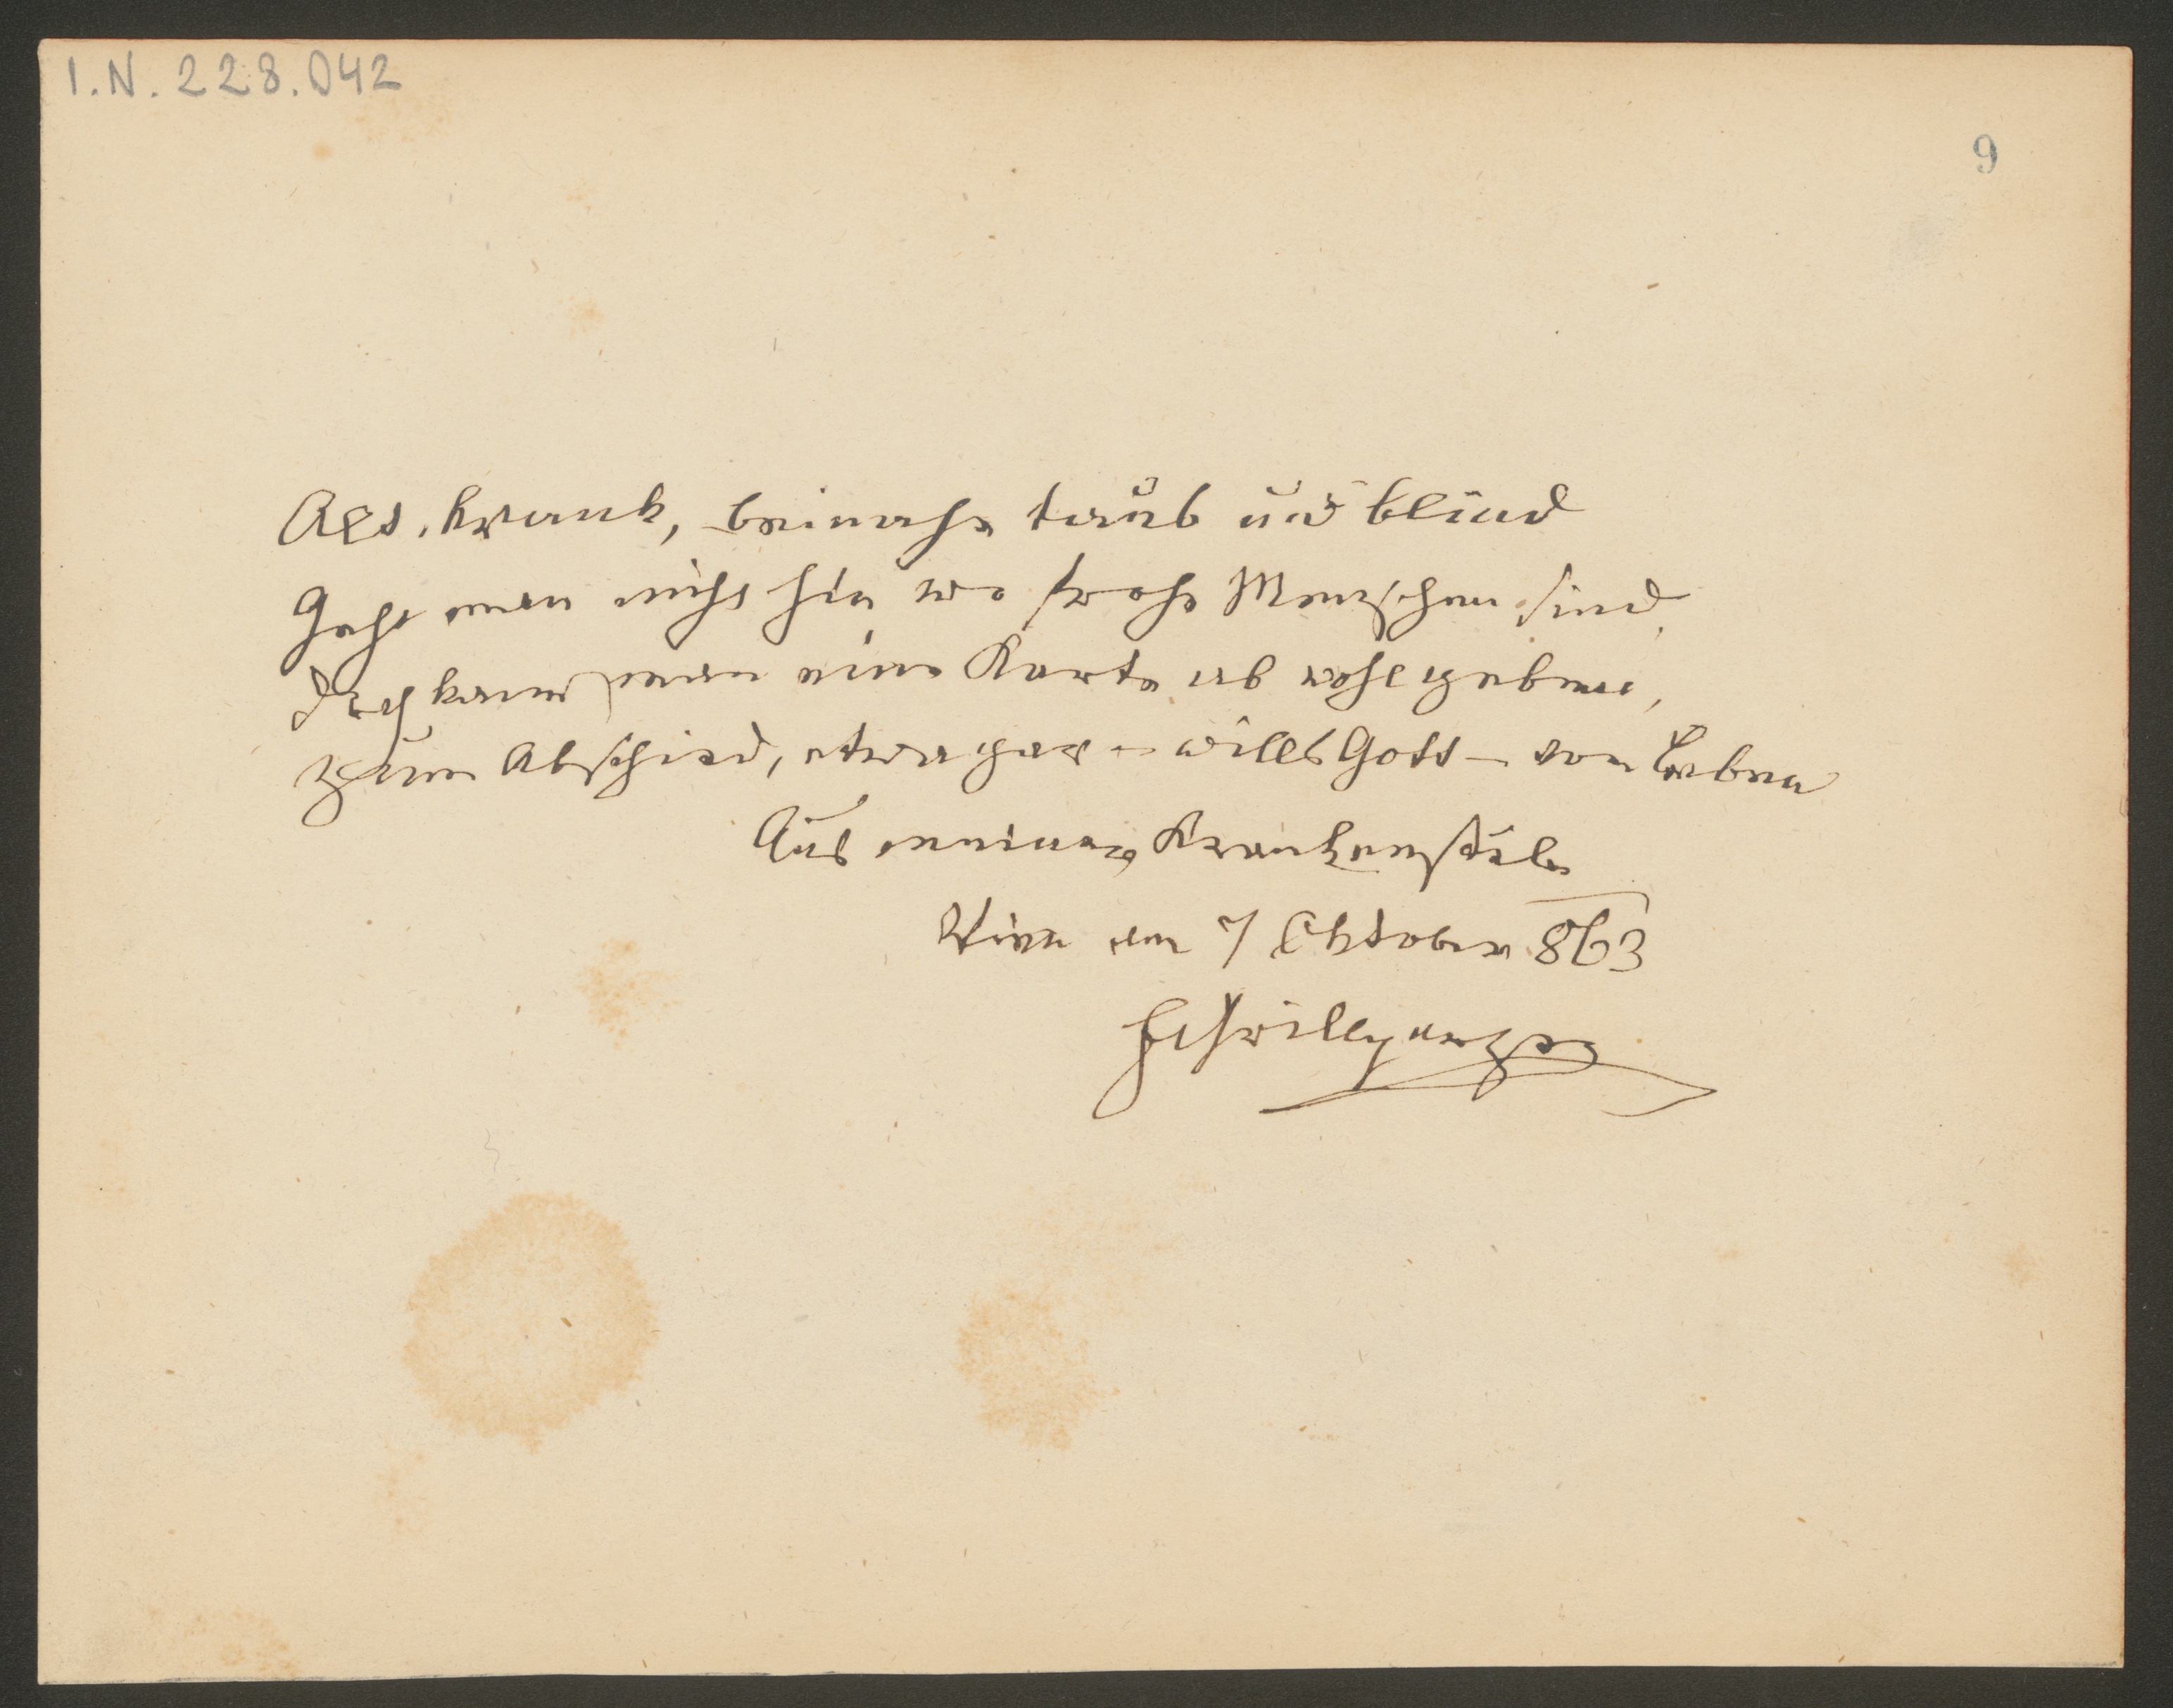 I.N. 228.042
9
Alt, krank, beinahe taub und blind
Geht man nicht hin wo frohe Menschen sind,
Doch kann man eine Karte ab wohl geben,
zum Abschied, etwa gar – wills Gott – vom Leben
Aus meiner Krankenstube
Wien am 7 Oktober 863